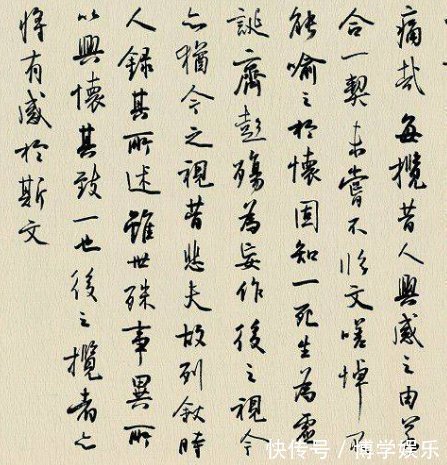 痛哉每攬昔人興感之由若
合一契未嘗不臨文嗟悼不
能喻之於懷固知一死生為虛
誕齊彭殤為妄作後之視今
亦猶今之視昔悲夫故列敘時
人錄其所述雖世殊事異所
以興懷其致一也後之攬者亦
將有感於斯文
快传号 / 博学娱乐